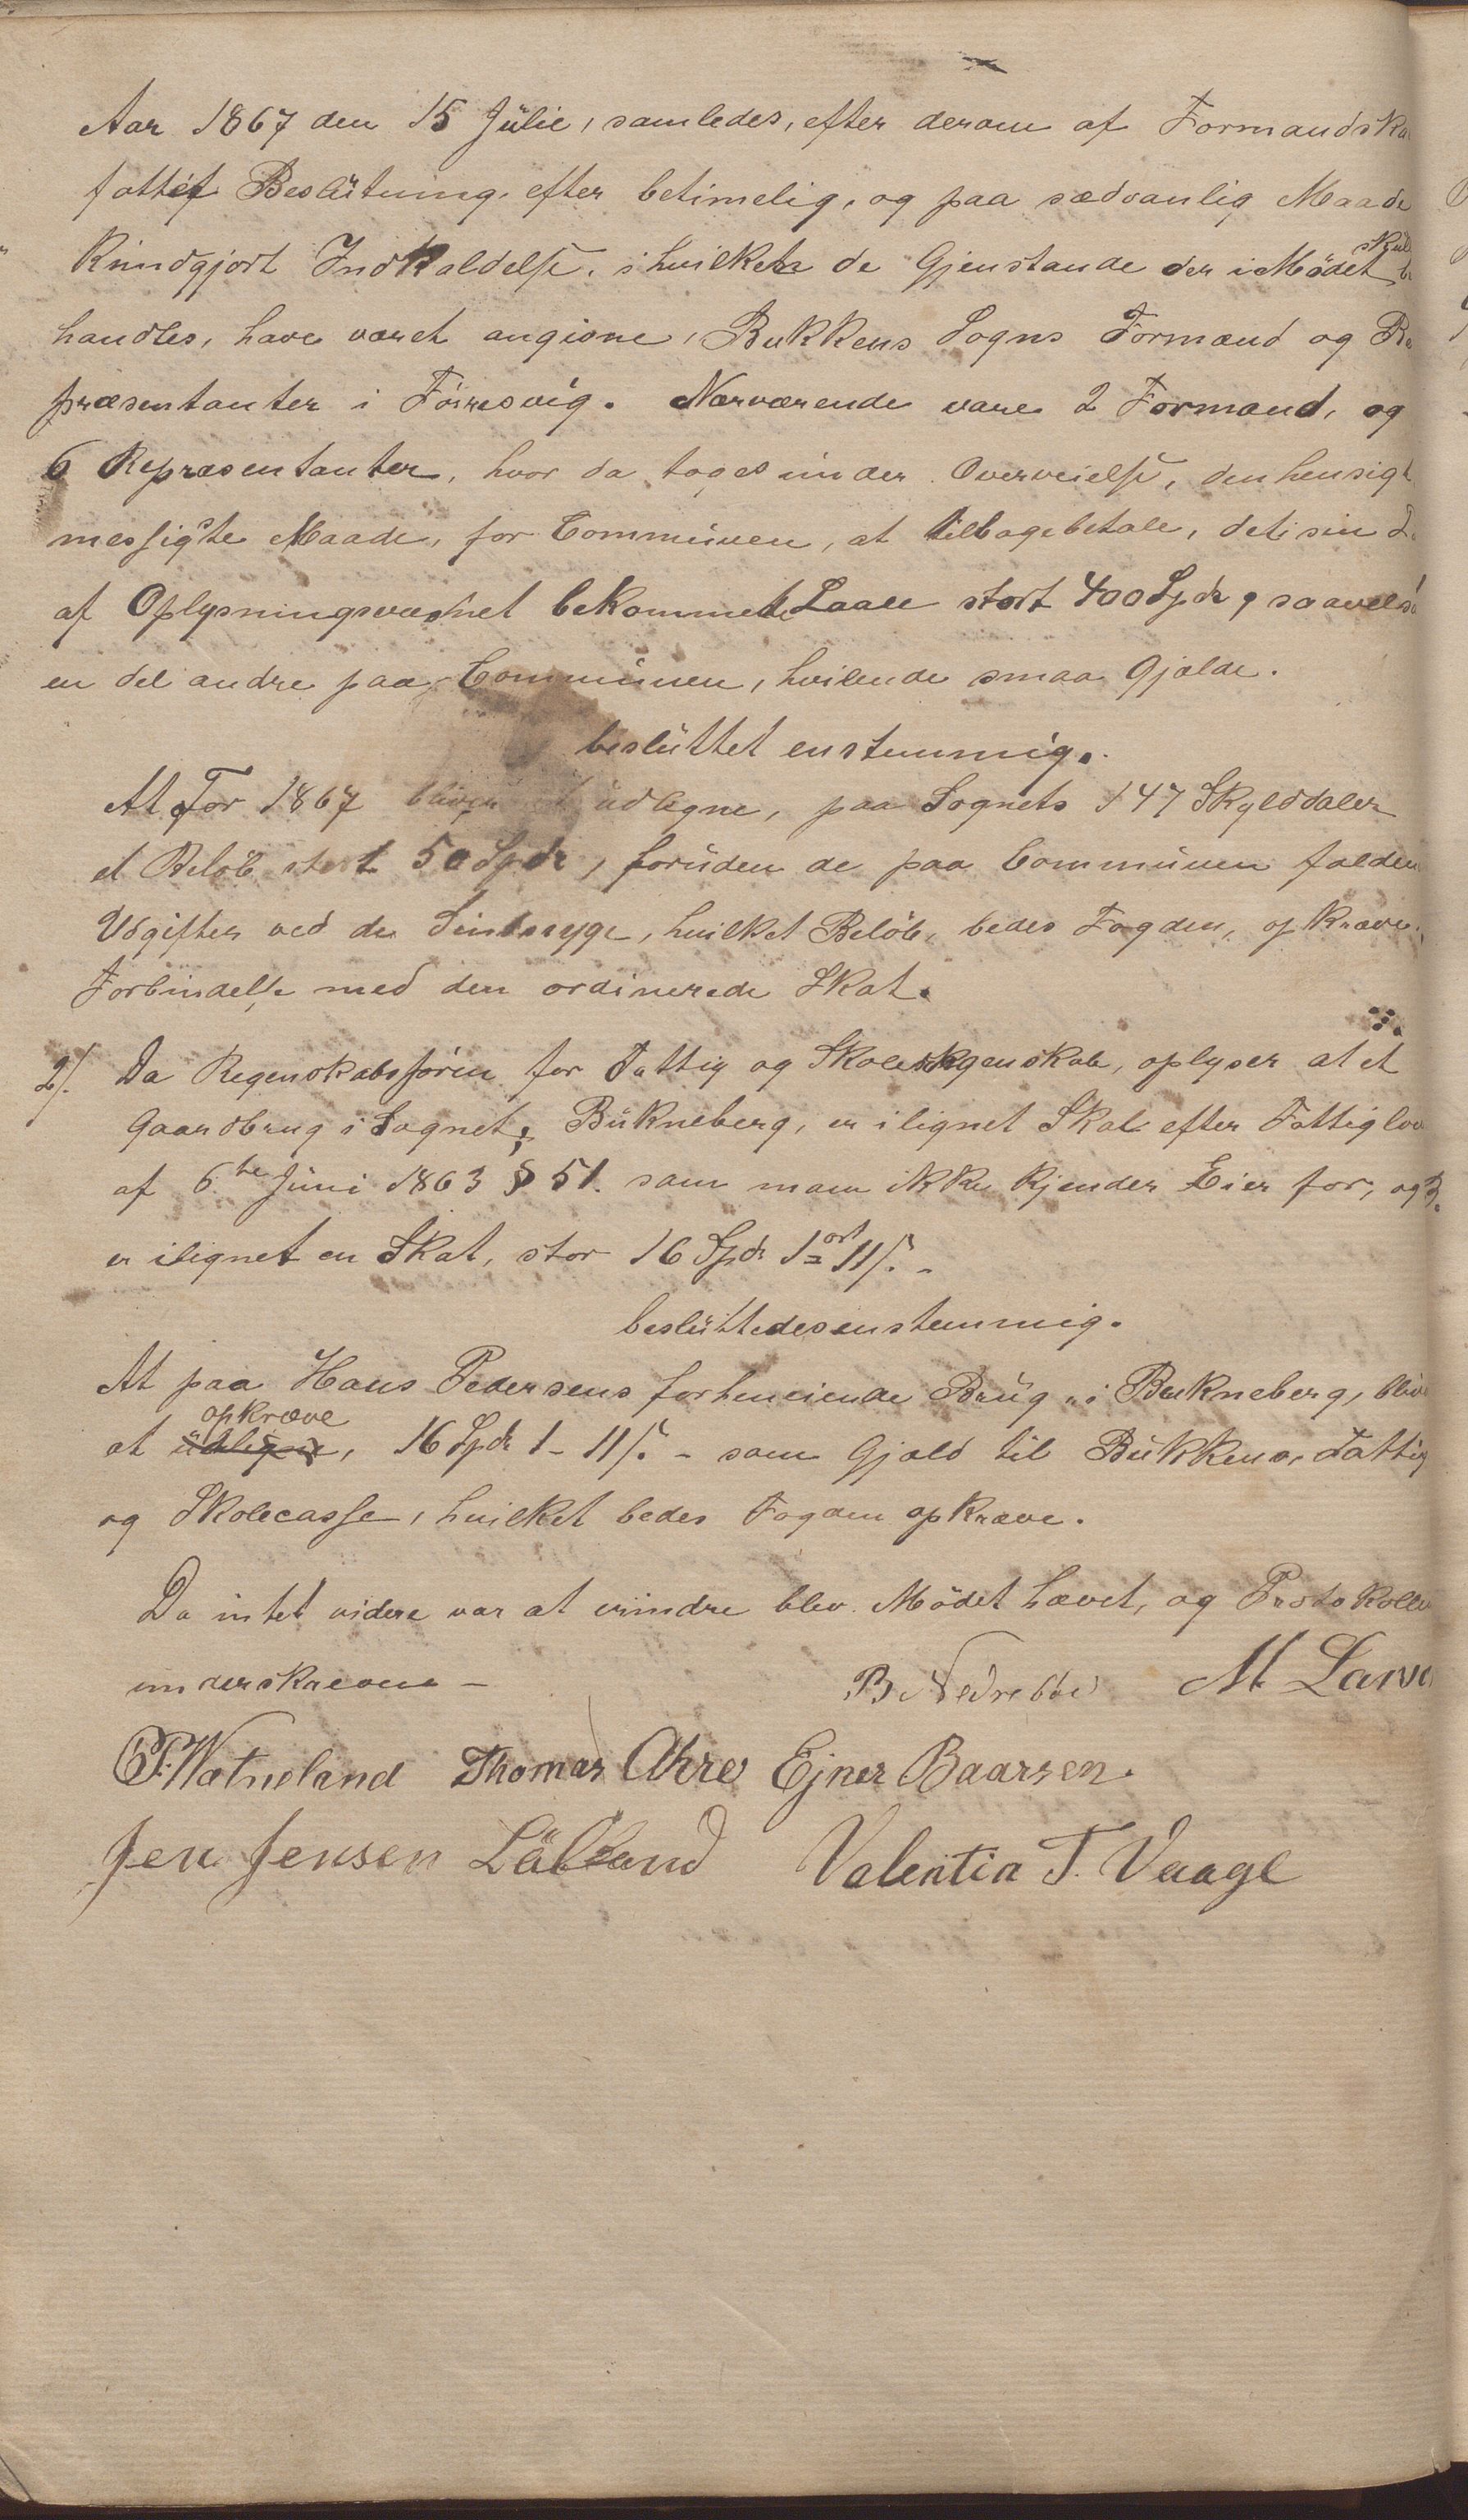 Aar 1867 den 15 Julie, samledes, efter derom af Formandska
fattet Beslutning, efter betimelig, og paa sædvanlig Maade
kundgjort Indkaldelse, i hvilken de Gjenstande der i Mødet skul be
handles, have været angivne, Bukkens Sogns Formænd og Re
præsentanter i Førresvig. Nærværende vare 2 Formænd, og
6 Repræsentanter, hvor da toges under Overveielse, den hensigt
messigste Maade, for Communen, at tilbagebetale, det i sin
af Oplysningsvæsnet bekommede Laan stort 400 Spdr, saavelso
en del andre paa Communen, hvilende smaa Gjælde.
besluttet enstemmig.
At for 1867 bliver at udligne, paa Sognets 147 Skylddaler
et Beløb stort 50 Spdr, foruden de paa Communen falden
Udgifter ved de Sindssyge, hvilket Beløb, bedes Fogden, opkræve i
Forbindelse med den ordinerede Skat.
2/. Da Regenskabsføren for Fattig og Skoleregenskab, oplyser at et
Gaardbrug i Sognet, Bukneberg, er ilignet Skat efter Fattiglov
af 6.te Juni 1863 § 51. som man ikke kjender Eier for, og
er ilignet en Skat, stor 16 Spdr 1 ort 11 s. -
besluttedes enstemmig.
At paa Hans Pedersens forheneiende Brug i Bukneberg, bliv
at udligne opkræve, 16 Spdr 1 - 11 s. - som Gjæld til Bukkens Fattig
og Skolecasse, hvilket bedes Fogden opkræve.
Da intet videre var at erindre blev Mødet hævet, og Protokolle
underskreven -
B Nedrebøe M Larv
P. Watneland Thomas Ahre Ejner Baarsen.
Jen Jensen Laland Valentin T. Vaage